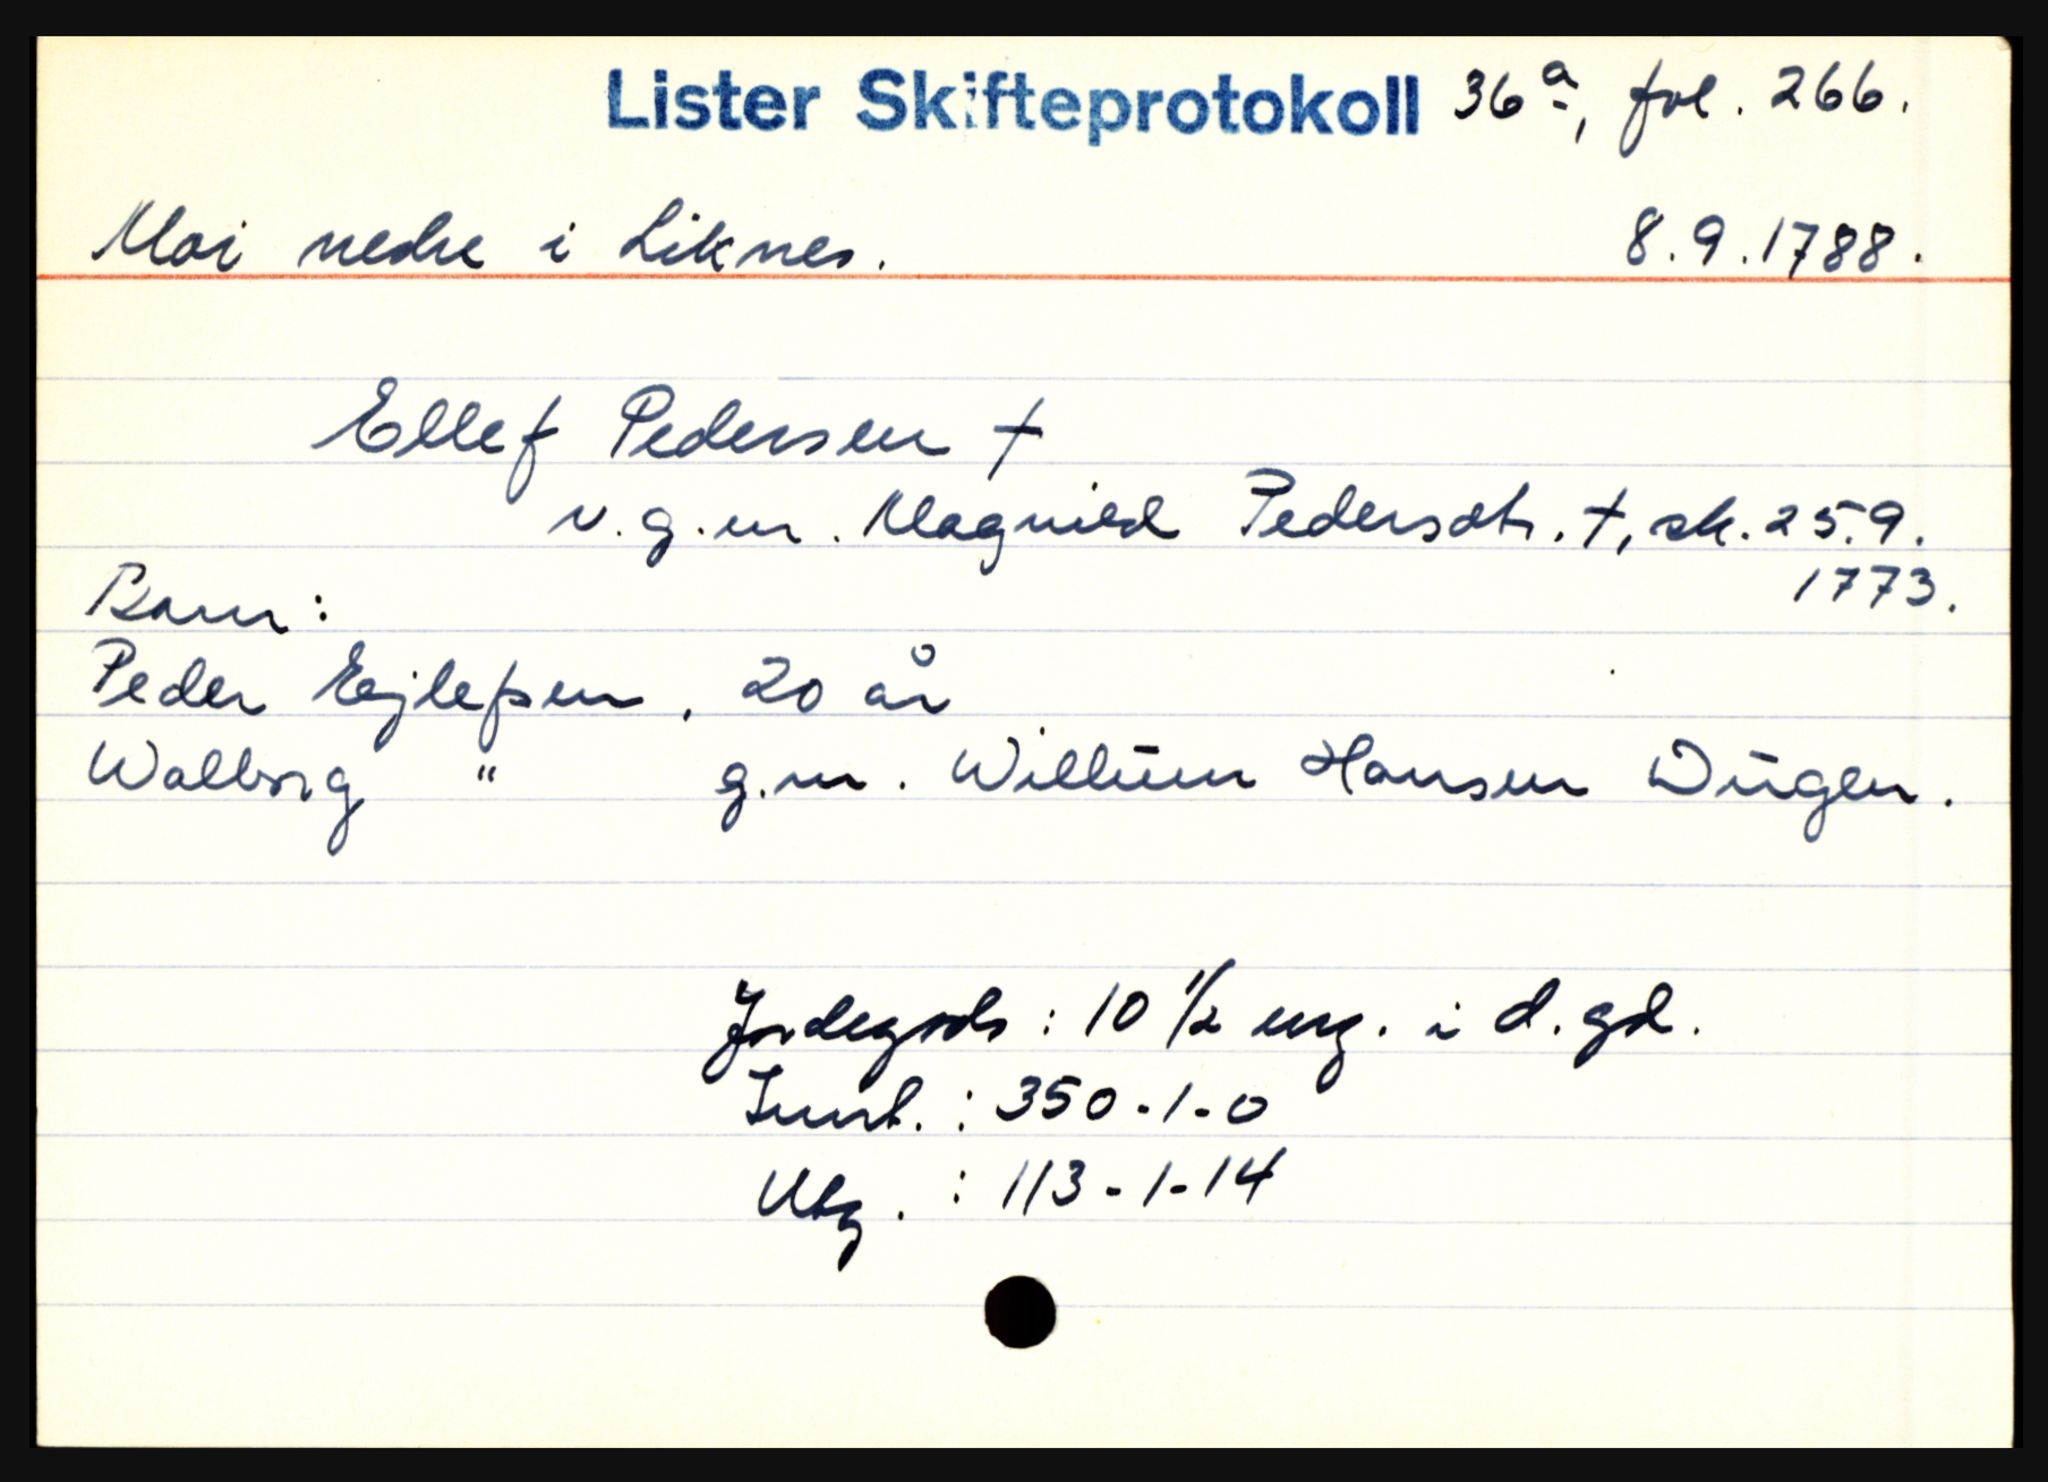 Lister Skifteprotokoll 36a, fol. 266.
Moi nedre i Liknes. 8.9.1788.
Ellef Pedersen †
v.g.m. Magnild Pedersdtr. †, sk. 25.9.
1773.
Barn:
Peder Eejlefsen, 20 år
Walborg " g.m. Willum Hansen Dugen.
Jordegods: 10 1/2 eng. i d. gd.
Innt.: 350-1-0
Utg.: 113-1-14